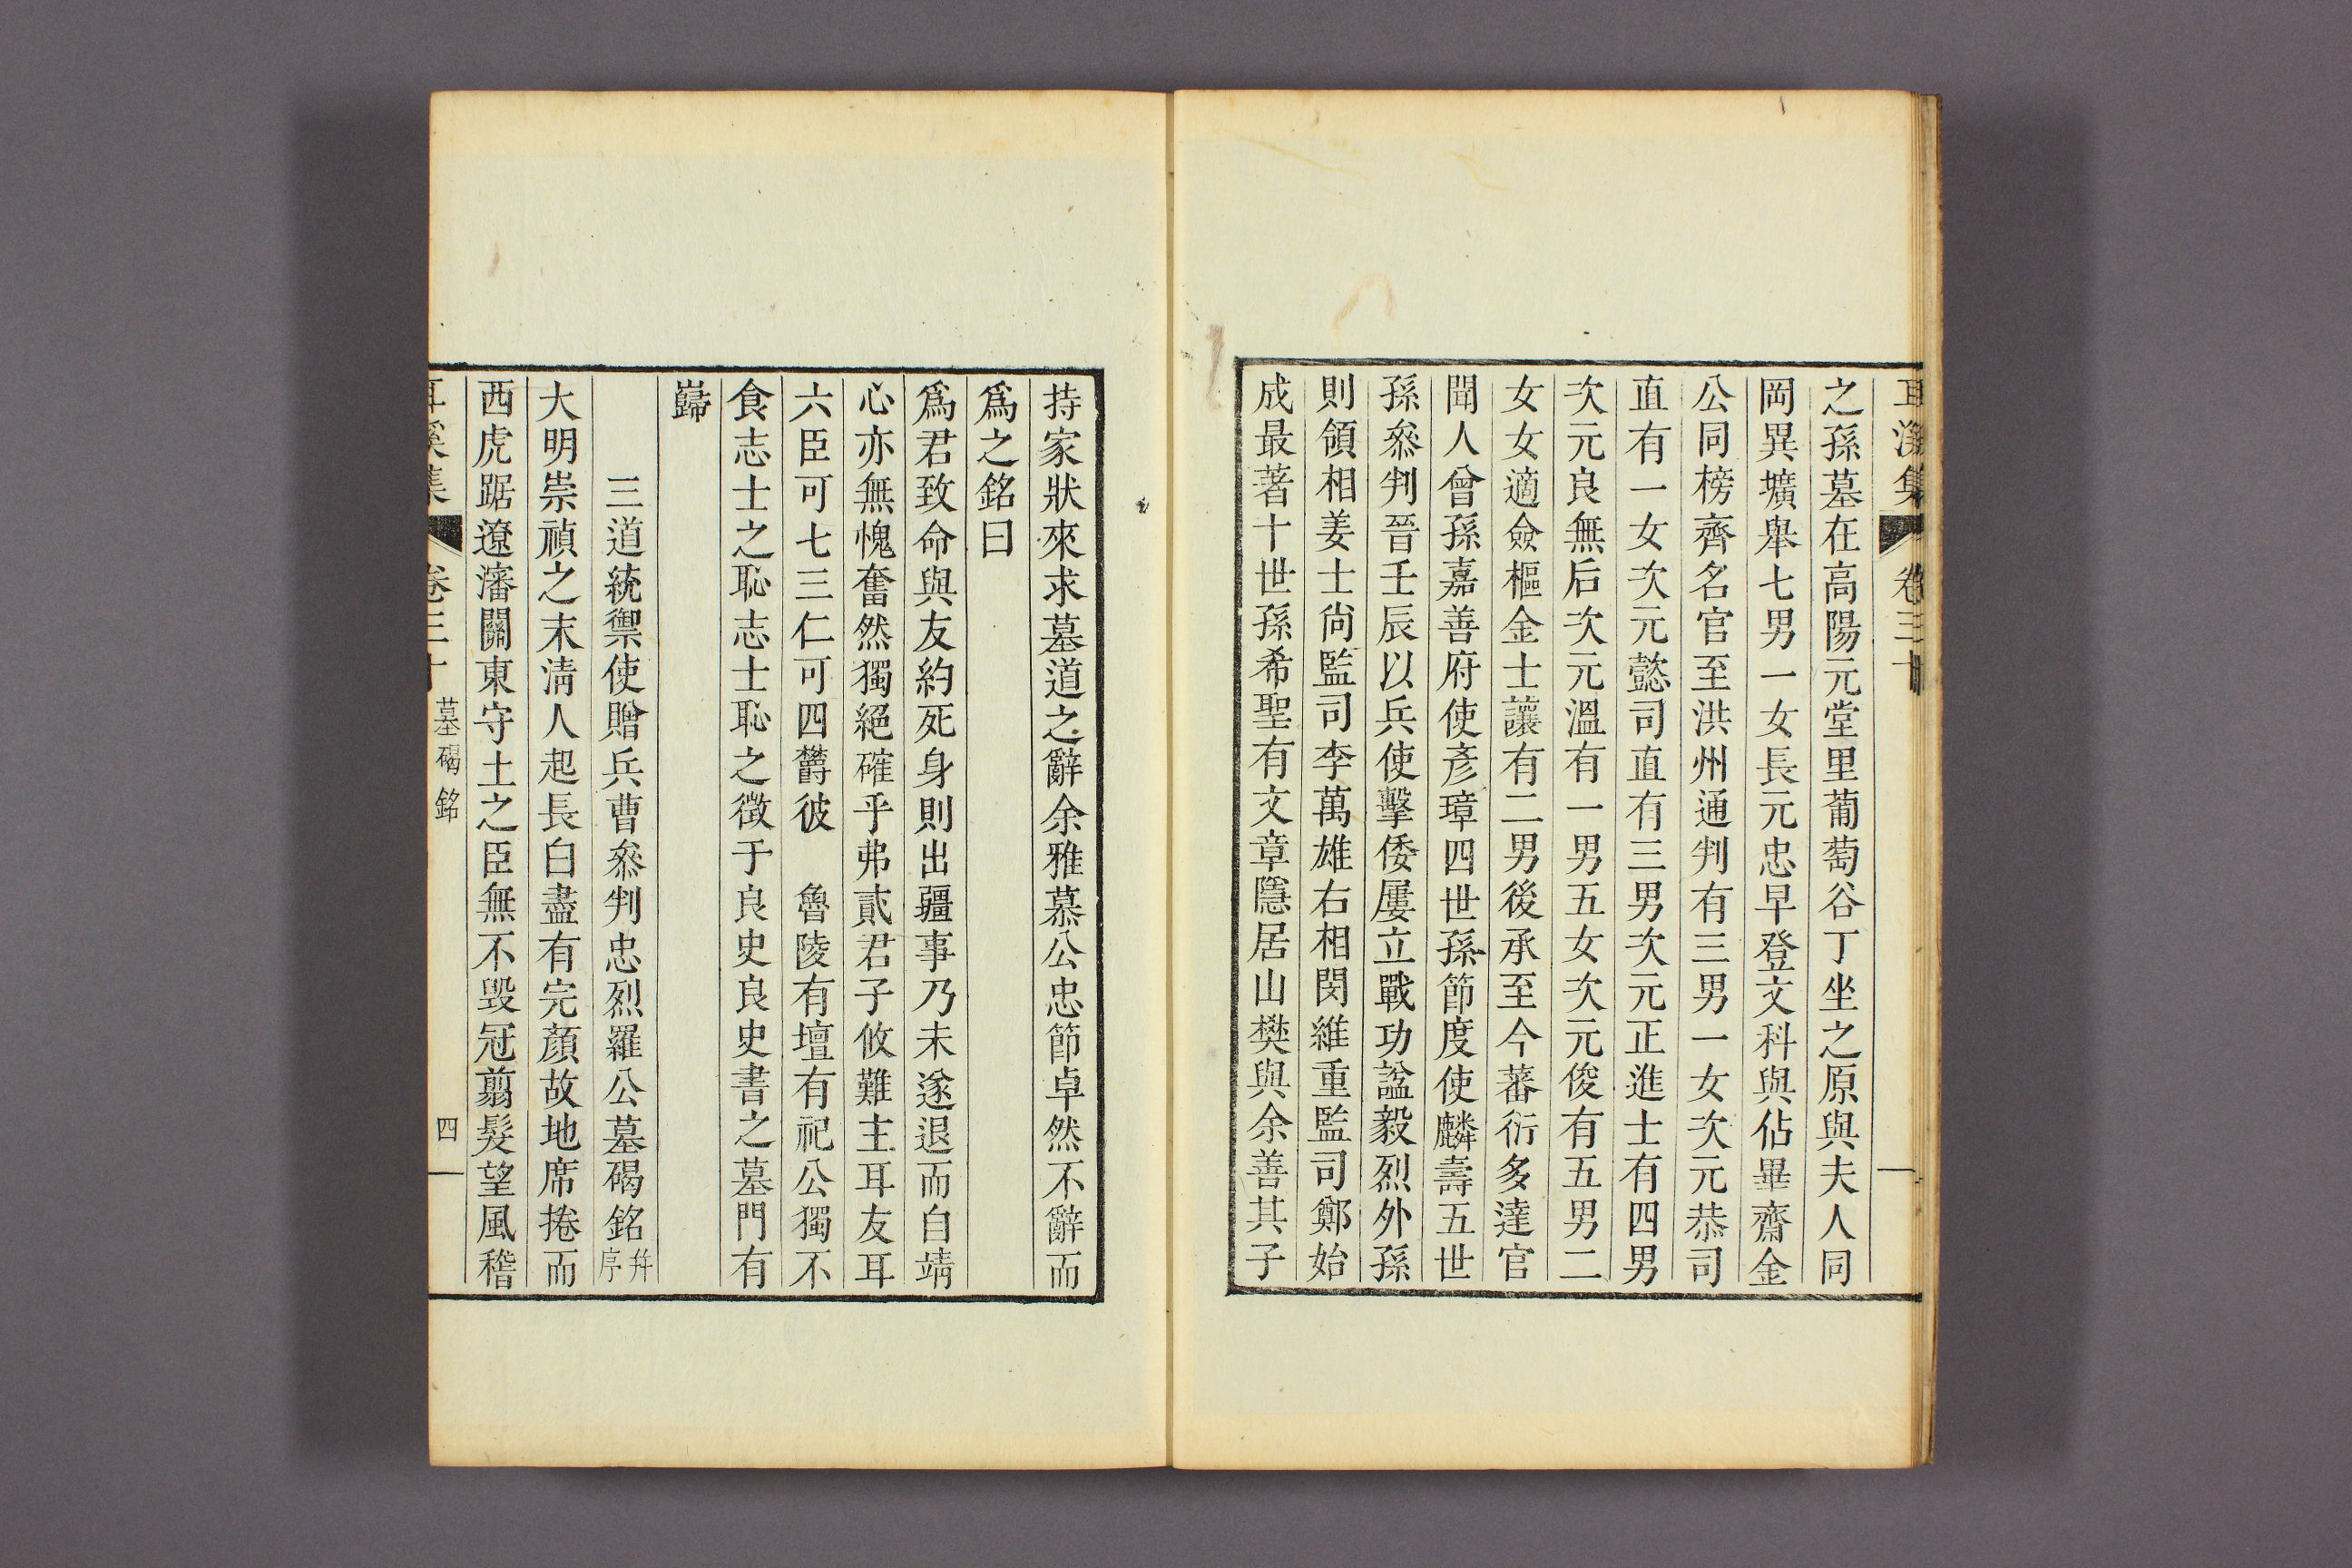 耳溪集 卷三十
之孫墓在高陽元堂里葡萄谷丁坐之原與夫人同
岡異壙舉七男一女長元忠早登文科與佔畢齋金
公同榜齊名官至洪州通判有三男一女次元恭司
直有一女次元懿司直有三男次元正進士有四男
次元良無后次元溫有一男五女次元俊有五男二
女女適僉樞金士讓有二男後承至今蕃衍多達官
聞人曾孫嘉善府使彥璋四世孫節度使麟壽五世
孫叅判晉壬辰以兵使擊倭屢立戰功諡毅烈外孫
則領相姜士尙監司李萬雄右相閔維重監司鄭始
成最著十世孫希聖有文章隱居山樊與余善其子
持家狀來求墓道之辭余雅慕公忠節卓然不辭而
爲之銘曰
爲君致命與友約死身則出疆事乃未遂退而自靖
心亦無愧奮然獨絕確乎弗貳君子攸難主耳友耳
六臣可七三仁可四欝彼 魯陵有壇有祀公獨不
食志士之恥志士恥之徵于良史良史書之墓門有
巋
三道統禦使贈兵曹叅判忠烈羅公墓碣銘 幷序
大明崇禎之末淸人起長白盡有完顏故地席捲而
西虎踞遼瀋關東守土之臣無不毀冠翦髮望風稽
耳溪集 卷三十 墓碣銘 四